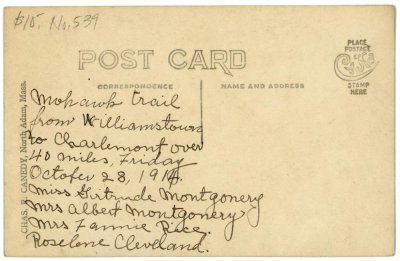 $10. No. 539
POST CARD
CORRESPONDENCE
NAME AND ADDRESS
PLACE
POSTAGE
STAMP
HERE
CHAS. R. CANEDY, North Adams, Mass.
Mohawk trail
from Williamstown
to Charlemont over
40 miles, Friday
October 28, 1914.
Miss Gertrude Montgonery
Mrs Albert Montgomery
Mrs Fannie Rice.
Roselene Cleveland.